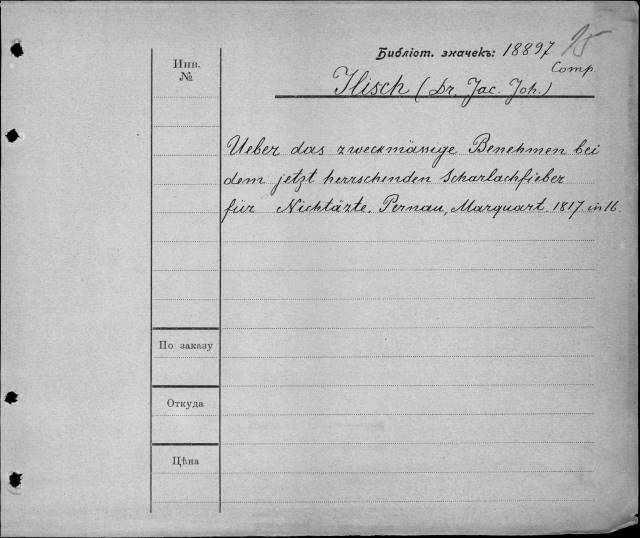 Библіот. значекъ: 18897 15
Comp.
Инв.
№
Ilisch (Dr. Jac. Joh.)
Ueber das zweckmässige Benehmen bei
dem jetzt herrschenden Scharlachfieber
für Nichtäzte. Pernau, Marquart. 1817. in 16.
По заказу
Откуда
Цѣна